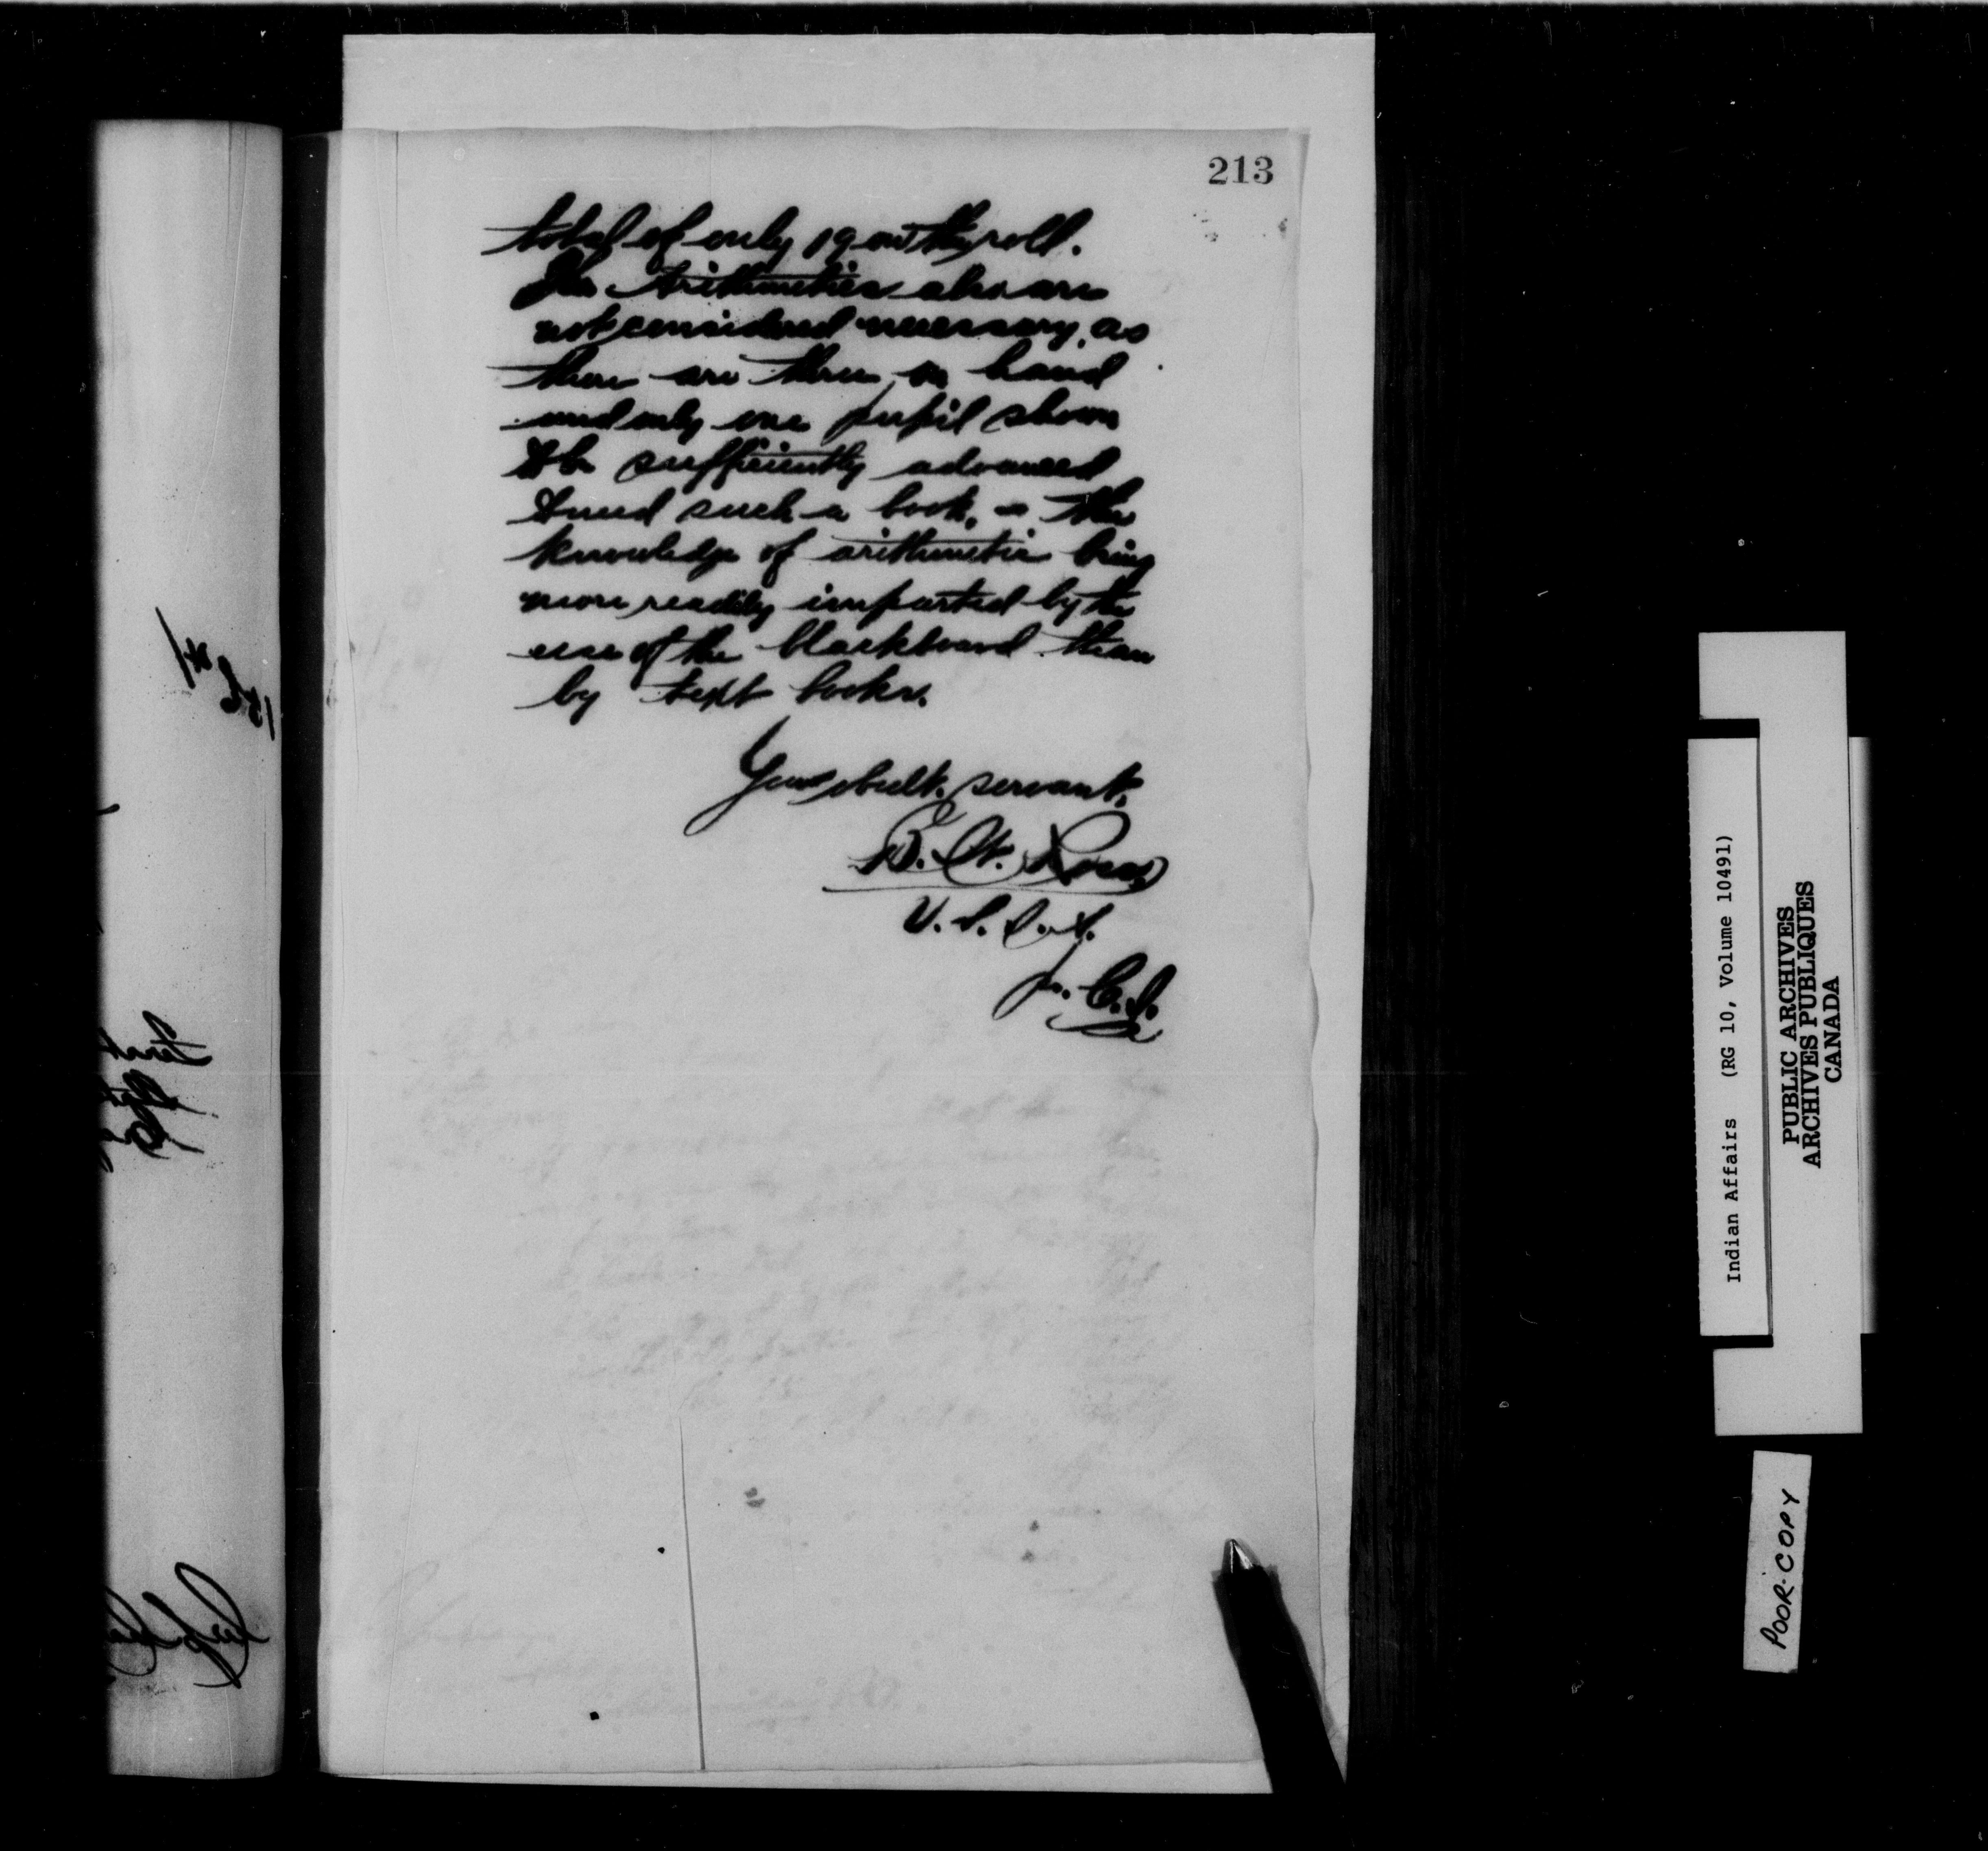 213
total of only 19 on the roll.
The Arithmetics also are
not considered necessary, as
there are three on hand
and only one pupil shown
to be sufficiently advanced
to need such a book, - the
knowledge of arithmetic being
more readily imparted by the
use of the blackboard than
by text books.
Your obedt. servant,
U. S. I. A.
Indian Affairs (RG 10, Volume 10491)
PUBLIC ARCHIVES
ARCHIVES PUBLIQUES
CANADA
POOR COPY